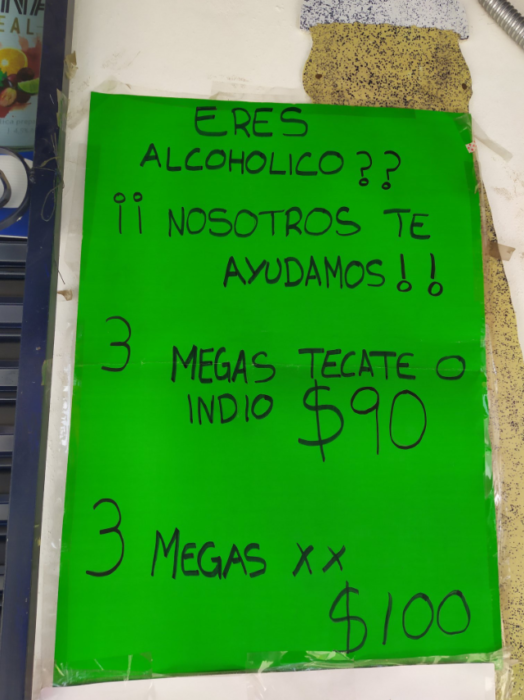 ERES
ALCOHOLICO??
¡¡ NOSOTROS TE
AYUDAMOS!!
3 MEGAS TECATE O
INDIO $90
3 MEGAS XX
$100